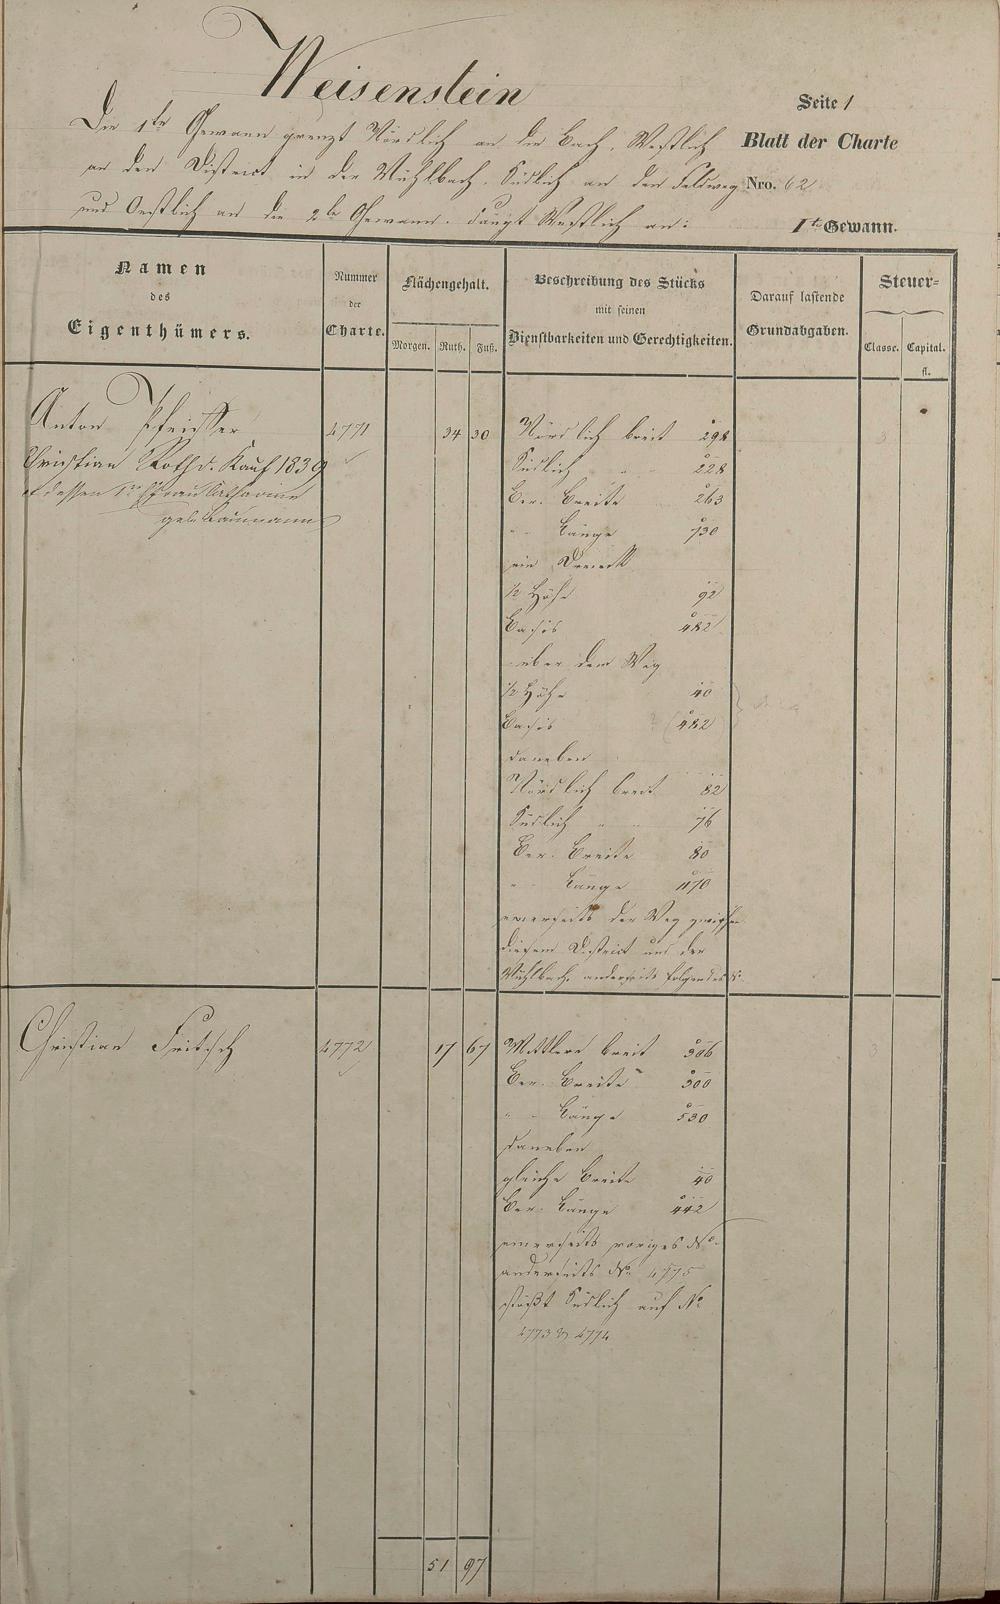 Weisenstein
Seite 1
Die 1te Gewann grenzt Nördlich an die Bach, Westlich
Blatt der Charte
an den District in der Mühlbach, Südlich an den Feldweg
Nro. 62
und Oestlich an die 2te Gewann. Fängt Westlich an:
1te Gewann.
Namen
des
Eigenthümers.
Nummer
der
Charte.
Flächengehalt.
Morgen. Ruth. Fuß.
Beschreibung des Stücks
mit seinen
Dienstbarkeiten und Gerechtigkeiten.
Darauf lastende
Grundabgaben.
Steuer-
Classe. Capital.
fl.
Anton Pfeiffer 4771 34 30 Nördlich breit 298 3
Christian Roth d. Kauf 1839
Südlich " " 228
et dessen 1te Frau Catharine
Ber. Breite 263
geb. Baumann
" Länge 730
ein Dreieck
1/2 Höhe 92
Basis 482
über dem Weg
1/2 Höhe 40
Basis (482
daneben
Nördlich breit 82
Südlich " 76
Ber. Breite 80
" Länge 1170
einerseits der Weg zwischen
diesem District und der
Mühlbach, anderseits folgendes N.
Christian Fritsch 4772 17 67 Mittlere breit 306 3
Ber. Breite 300
" Länge 530
daneben
gleiche Breite 40
Ber. Länge 442
einerseits voriges No.
anderseits No. 4775
stößt Südlich auf No
4773 & 4774
51 97